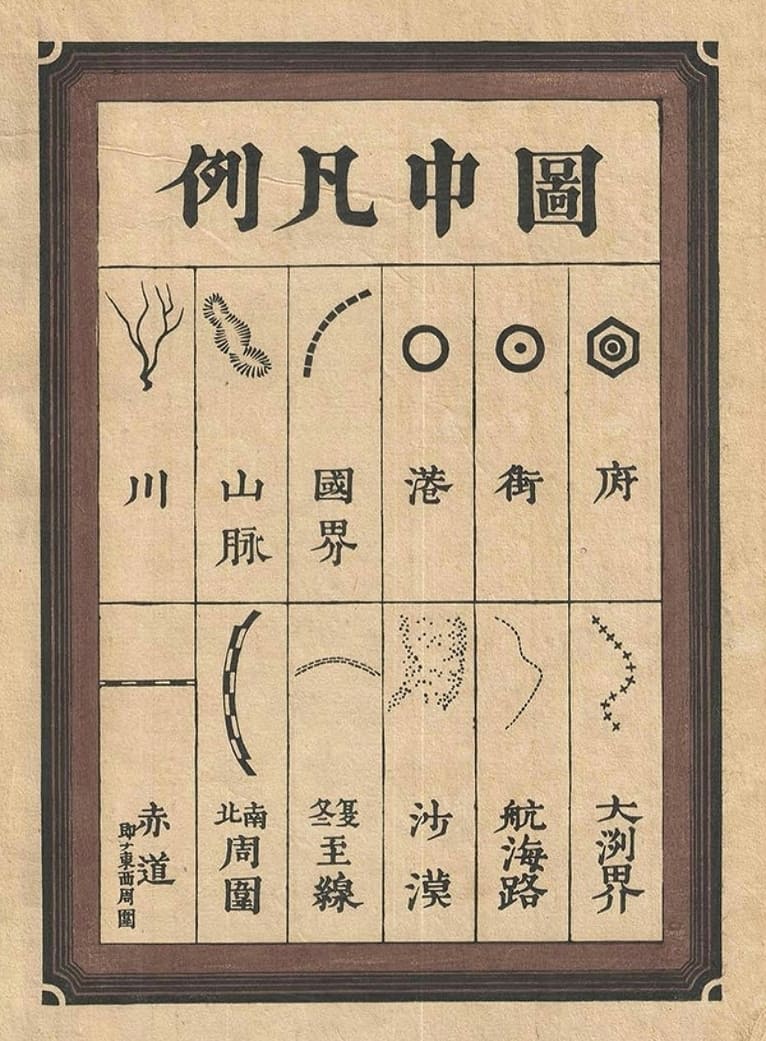 圖中凡例
府
街
港
國界
山脉
川
大洲界
航海路
沙漠
夏冬至線
南北周圍
赤道
即チ東西周圍